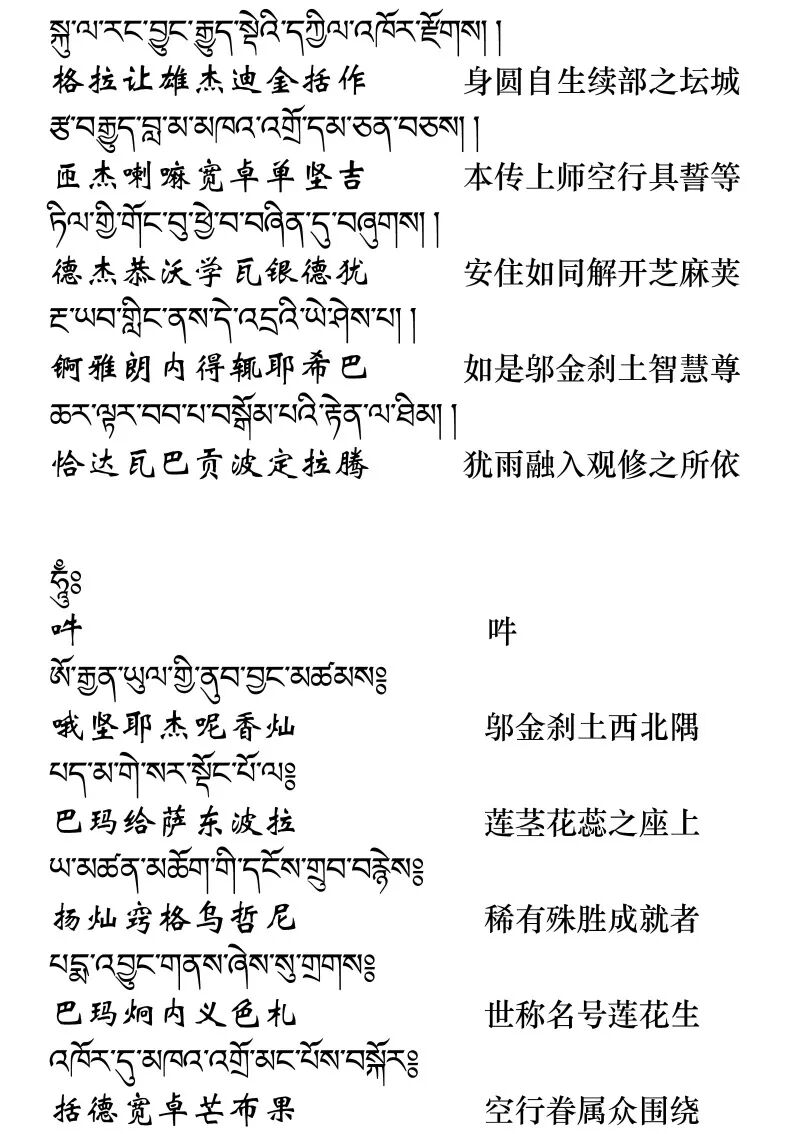 སྐུ་ལ་རང་བྱུང་རྒྱུད་སྡེའི་དཀྱིལ་འཁོར་རྫོགས། །
格拉让雄杰迪金括作 身圆自生续部之坛城
རྩ་བརྒྱུད་བླ་མ་མཁའ་འགྲོ་དམ་ཅན་བཅས། །
匝杰喇嘛宽卓单坚吉 本传上师空行具誓等
ཏིལ་གྱི་གོང་བུ་ཕྱེ་བ་བཞིན་དུ་བཞུགས། །
德杰恭沃学瓦银德犹 安住如同解开芝麻荚
རྔ་ཡབ་གླིང་ནས་དེ་འདྲའི་ཡེ་ཤེས་པ། །
锕雅朗内得辄耶希巴 如是邬金刹土智慧尊
ཆར་ལྟར་བབ་པ་བསྒོམ་པའི་རྟེན་ལ་ཐིམ། །
恰达瓦巴贡波定拉腾 犹雨融入观修之所依
ཧཱུྃ༔
吽 吽
ཨོ་རྒྱན་ཡུལ་གྱི་ནུབ་བྱང་མཚམས༔
哦坚耶杰呢香灿 邬金刹土西北隅
པད་མ་གེ་སར་སྡོང་པོ་ལ༔
巴玛给萨东波拉 莲茎花蕊之座上
ཡ་མཚན་མཆོག་གི་དངོས་གྲུབ་བརྙེས༔
扬灿窍格乌哲尼 稀有殊胜成就者
པདྨ་འབྱུང་གནས་ཞེས་སུ་གྲགས༔
巴玛炯内义色札 世称名号莲花生
འཁོར་དུ་མཁའ་འགྲོ་མང་པོས་བསྐོར༔
括德宽卓芒布果 空行眷属众围绕